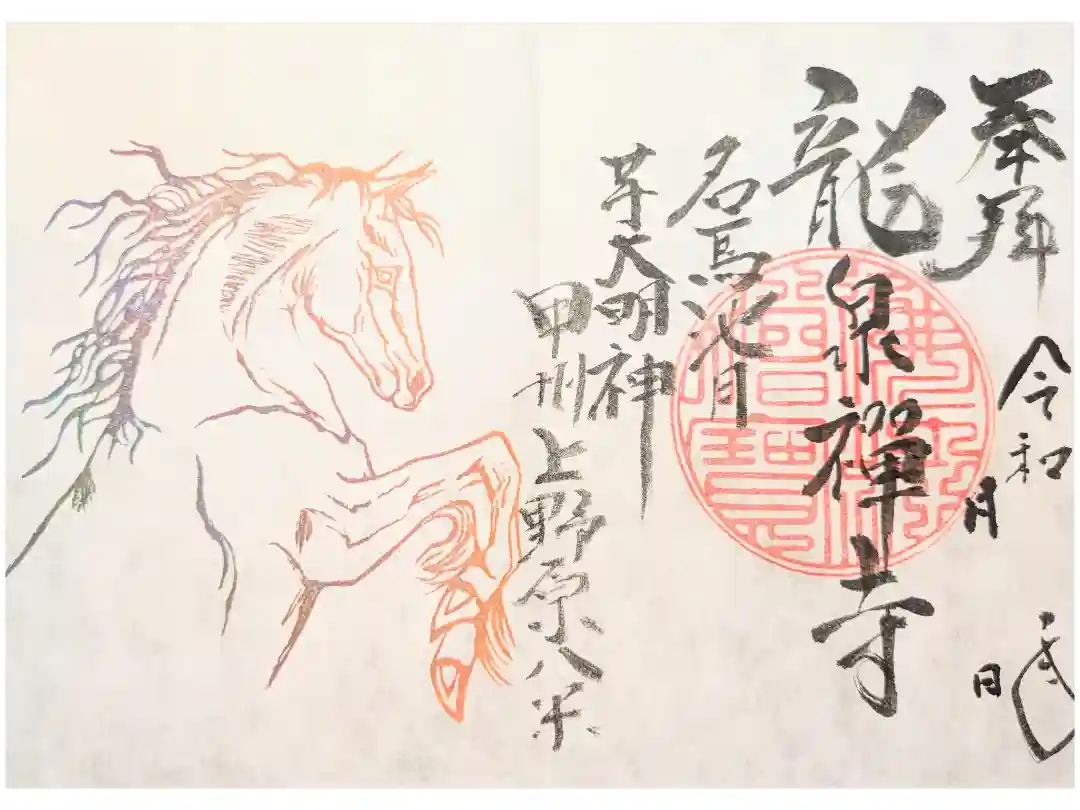 奉拝
令和 年
月 日
龍泉禅寺
名馬池月
芋大明神
甲州上野原八米